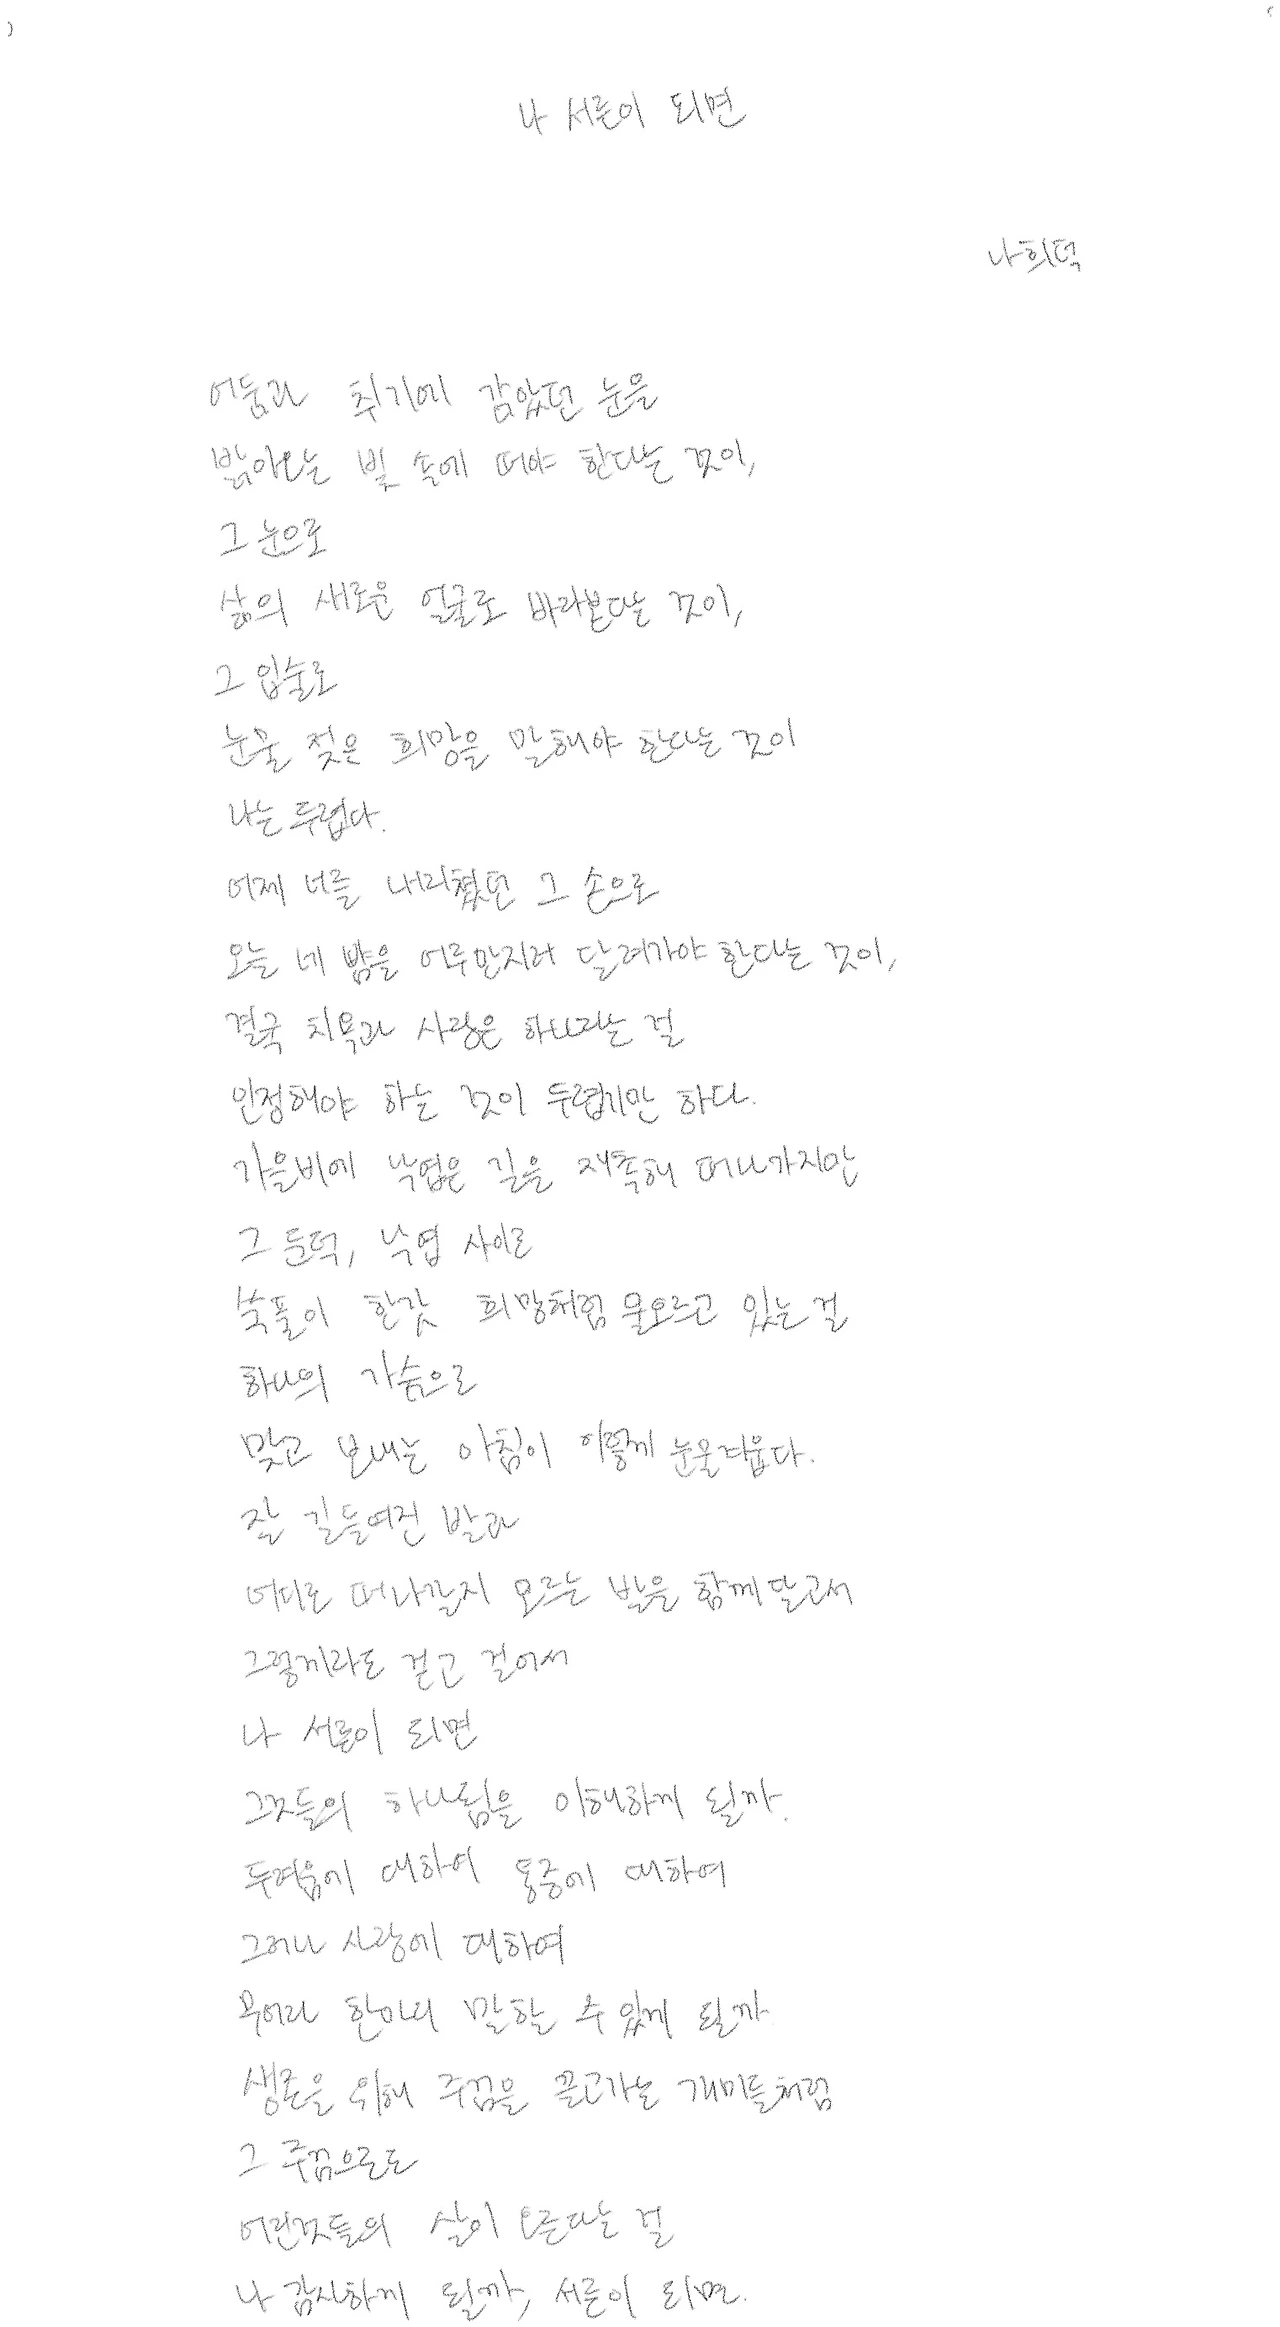 나 서른이 되면
나희덕
어둠과 취기에 감았던 눈을
밝아오는 빛 속에 떠야 한다는 것이,
그 눈으로
삶의 새로운 얼굴로 바라본다는 것이,
그 입술로
눈물 젖은 희망을 말해야 한다는 것이
나는 두렵다.
어제 너를 내리쳤던 그 손으로
오늘 네 뺨을 어루만지러 달려가야 한다는 것이,
결국 치욕과 사랑은 하나라는 걸
인정해야 하는 것이 두렵기만 하다.
가을비에 낙엽은 길을 재촉해 떠나가지만
그 둔덕, 낙엽 사이로
쑥풀이 한갓 희망처럼 물오르고 있는 걸
하나의 가슴으로
맞고 보내는 아침이 이렇게 눈물겨웁다.
잘 길들여진 발과
어디로 떠나갈지 모르는 발을 함께 달고서
그렇게라도 걷고 걸어서
나 서른이 되면
그것들의 하나됨을 이해하게 될까.
두려움에 대하여 통증에 대하여
그러나 사랑에 대하여
무어라 한마디 말할 수 있게 될까.
생존을 위해 주검을 끌고가는 개미들처럼
그 주검으로도
어린것들의 살이 오른다는 걸
나 감사하게 될까, 서른이 되면.